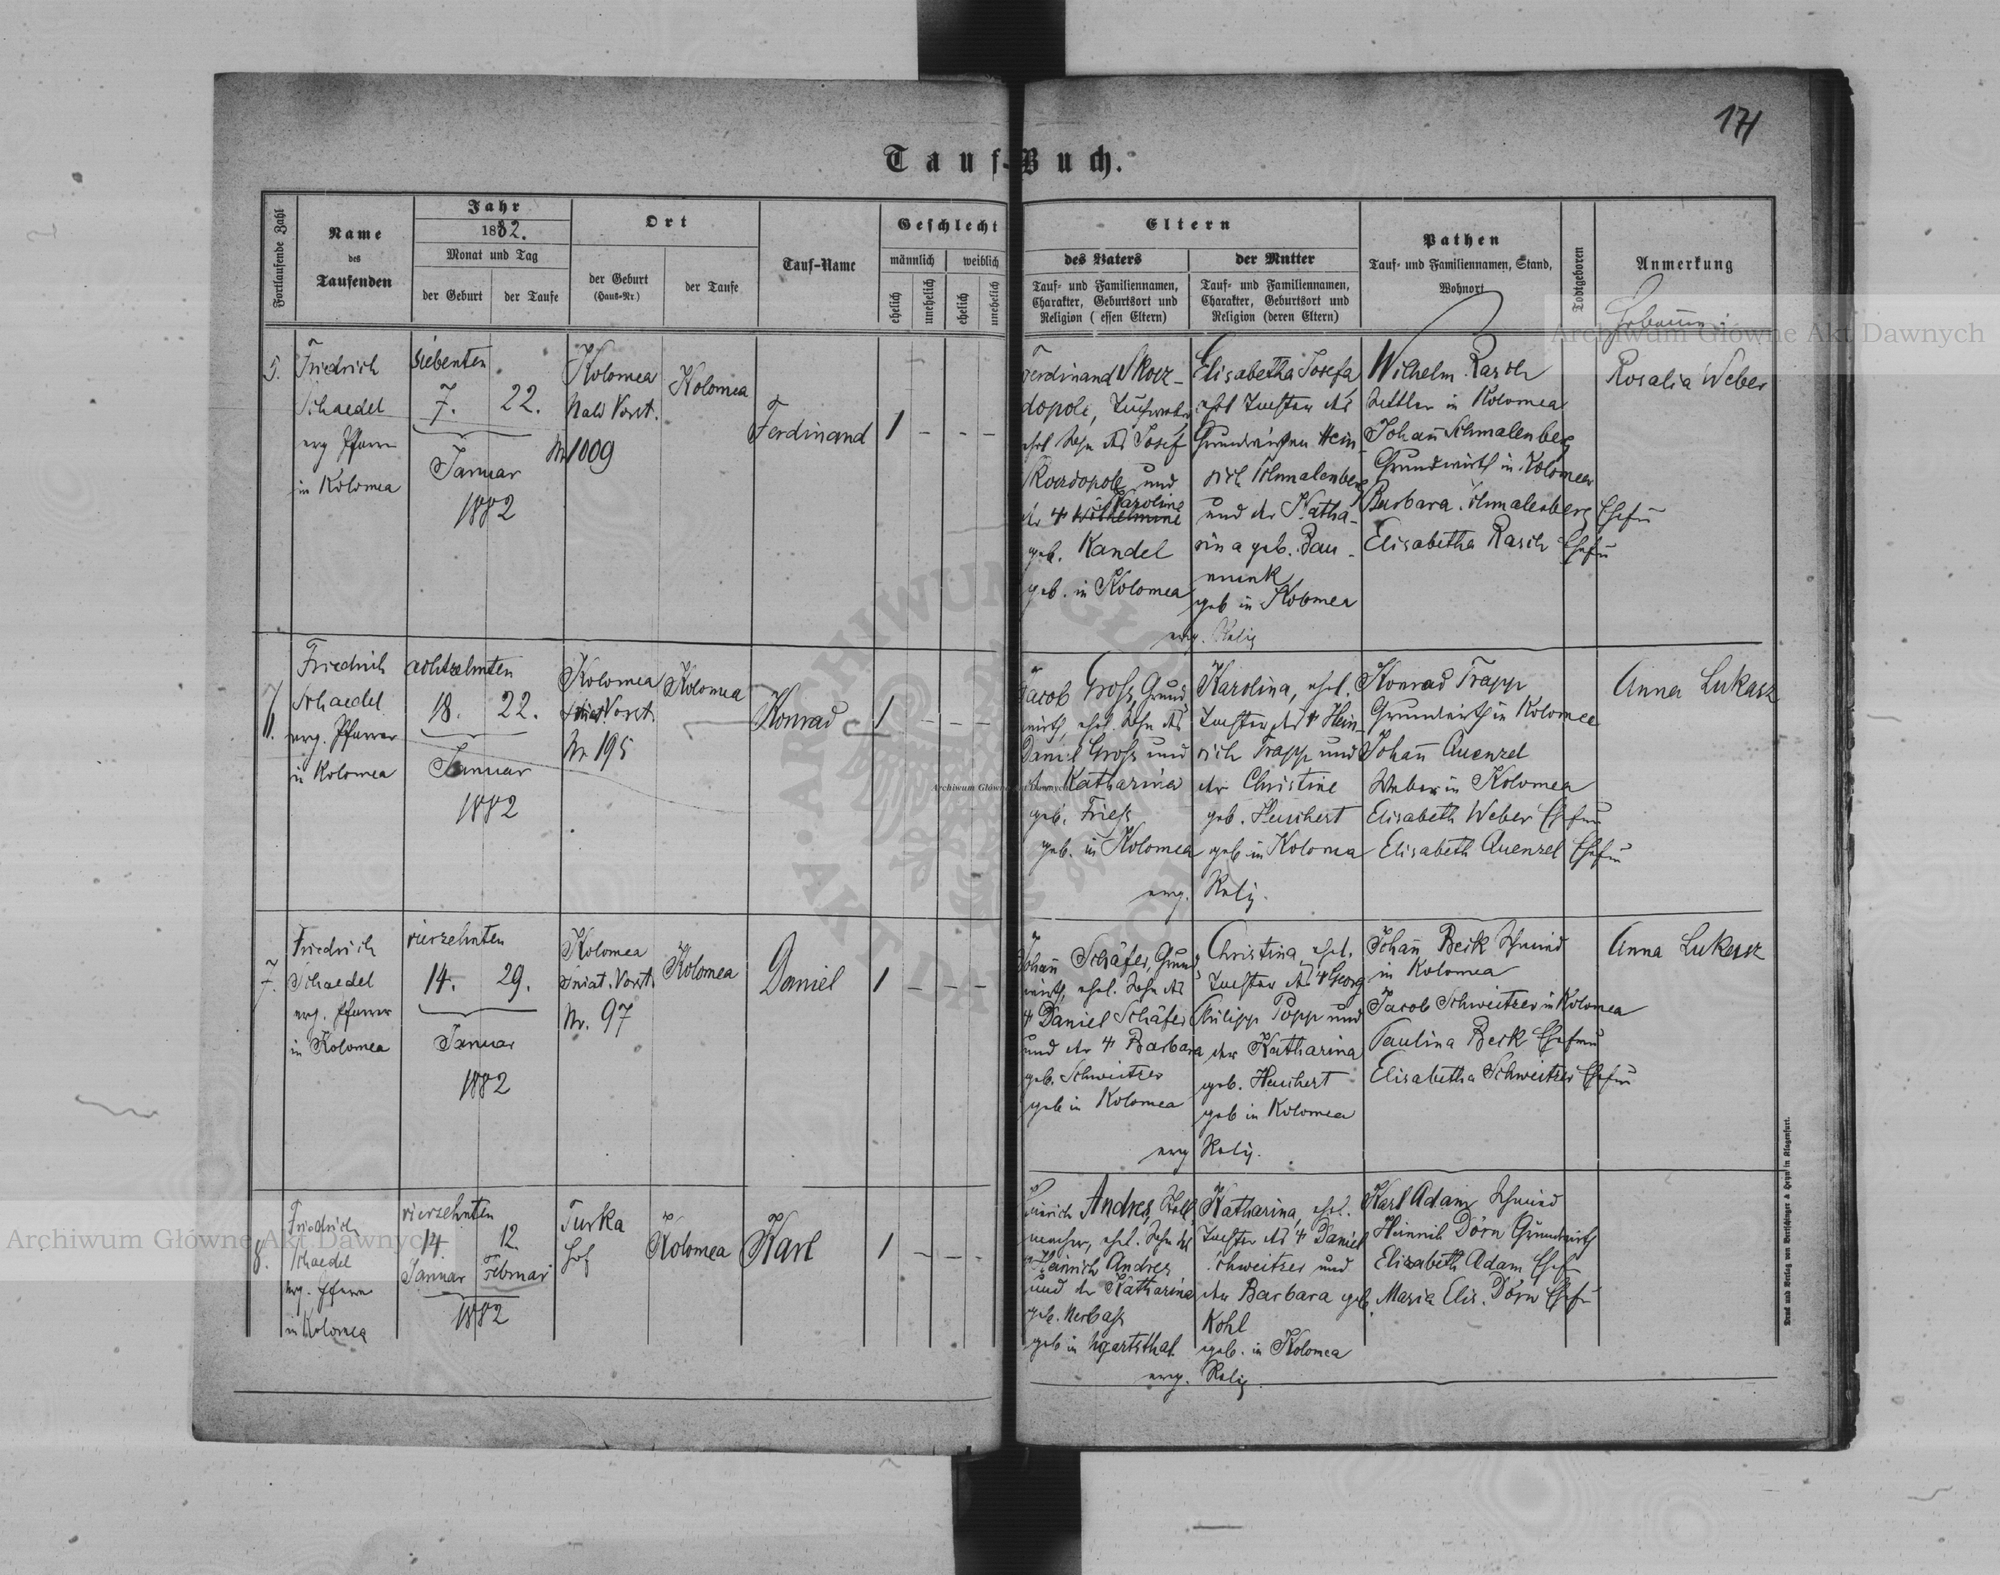 171
Tauf-Buch.
Fortlaufende Zahl
Name
des
Taufenden
Jahr
1882.
Monat und Tag
der Geburt
der Taufe
Ort
der Geburt
(Haus-Nr.)
der Taufe
Tauf-Name
Geschlecht
männlich
weiblich
ehelich
unehelich
ehelich
unehelich
Eltern
des Vaters
Tauf- und Familiennamen,
Charakter, Geburtsort und
Religion ( essen Eltern)
der Mutter
Tauf- und Familiennamen,
Charakter, Geburtsort und
Religion (deren Eltern)
Pathen
Tauf- und Familiennamen, Stand,
Wohnort
Todtgeboren
Anmerkung
5.
Friedrich
Schaedel
erg Pfarre
in Kolomea
siebenten
7.
22.
Januar
1882
Kolomea
Vorst.
Nr 1009
Kolomea
Ferdinand
1 - - -
Ferdinand Skorz-
dopole,
ehel Sohn des Josef
Skorzdopole und
Karoline
der Wilhelmine
geb. Kandel
geb. in Kolomea
Elisabetha Josefa
ehel Tochter des
Grundwirthen Hein-
rich Schmalenberg
und der Katha-
rina geb. Bau-
geb in Kolomea
evg. Relig
Wilhelm Rasch
Sattler in Kolomea
Johann Schmalenberg
Grundwirth in Kolomea
Barbara Schmalenberg Ehefrau
Elisabetha Rasch Ehefrau
Rosalia Weber
Friedrich
Schaedel
evg. Pfarrer
in Kolomea
achtzehnten
18.
22.
Januar
1882
Kolomea
Vorst.
Nr 195
Kolomea
Konrad
1 - - -
Jacob Gross, Grund
wirth, ehel. Sohn des
Daniel Gross und
der Katharina
geb. Friess
geb. in Kolomea
Karolina, ehel.
Tochter des Hein-
rich Trapp und
der Christine
geb. Heuchert
geb in Kolomea
evg. Relig.
Konrad Trapp
Grundwirth in Kolomea
Johann Quenzel
Weber in Kolomea
Elisabeth Weber Ehefrau
Elisabeth Quenzel Ehefrau
Anna Lukasz
7.
Friedrich
Schaedel
evg. Pfarrer
in Kolomea
vierzehnten
14.
29.
Januar
1882
Kolomea
Vorst.
Nr. 97
Kolomea
Daniel
1 - - -
Johann Schäfer, Grund
wirth, ehel. Sohn des
Daniel Schäfer
und der Barbara
geb. Schweitzer
geb in Kolomea
Christina, ehel.
Tochter des Georg
Philipp Popp und
der Katharina
geb. Heuchert
geb in Kolomea
evg Relig.
Johann Beck Schmied
in Kolomea
Jacob Schweitzer in Kolomea
Paulina Beck Ehefrau
Elisabetha Schweitzer Ehefrau
Anna Lukasz
8.
Friedrich
Schaedel
evg. Pfarre
in Kolomea
vierzehnten
14.
Januar
12.
Februar
1882
Turka
Hof
Kolomea
Karl
1 - - -
Heinrich Andres,
ehel. Sohn des
Heinrich Andres
und der Katharina
geb. Nerbass
geb in Ugartsthal
Katharina, ehel.
Tochter des Daniel
Schweitzer und
der Barbara geb.
Kohl
geb. in Kolomea
evg. Relig.
Karl Adam Schmied
Heinrich Dörn Grundwirth
Elisabeth Adam Ehefr
Maria Elis. Dörn Ehefr
Druck und Verlag von Bertschinger & Heyn in Klagenfurt.
Archiwum Główne Akt Dawnych
Archiwum Główne Akt Dawnych
Archiwum Główne Akt Dawnych